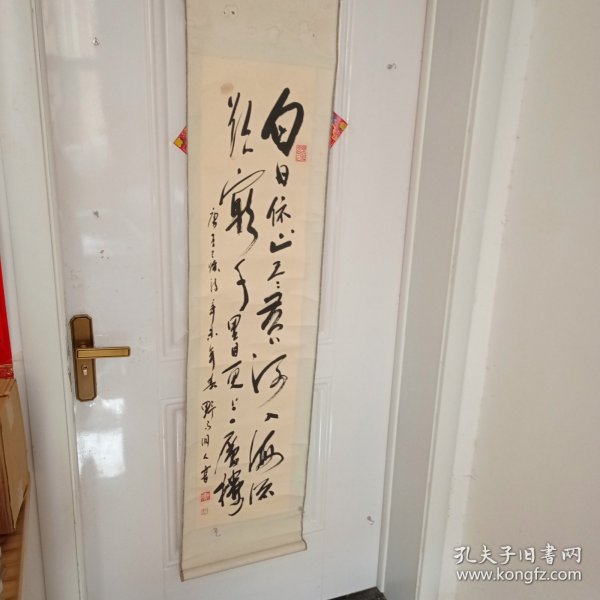 白日依山尽黄河入海流
欲穷千里目更上一层楼
唐王之涣诗辛未年春野鹤闲人书
孔夫子旧书网
www.kongfz.com